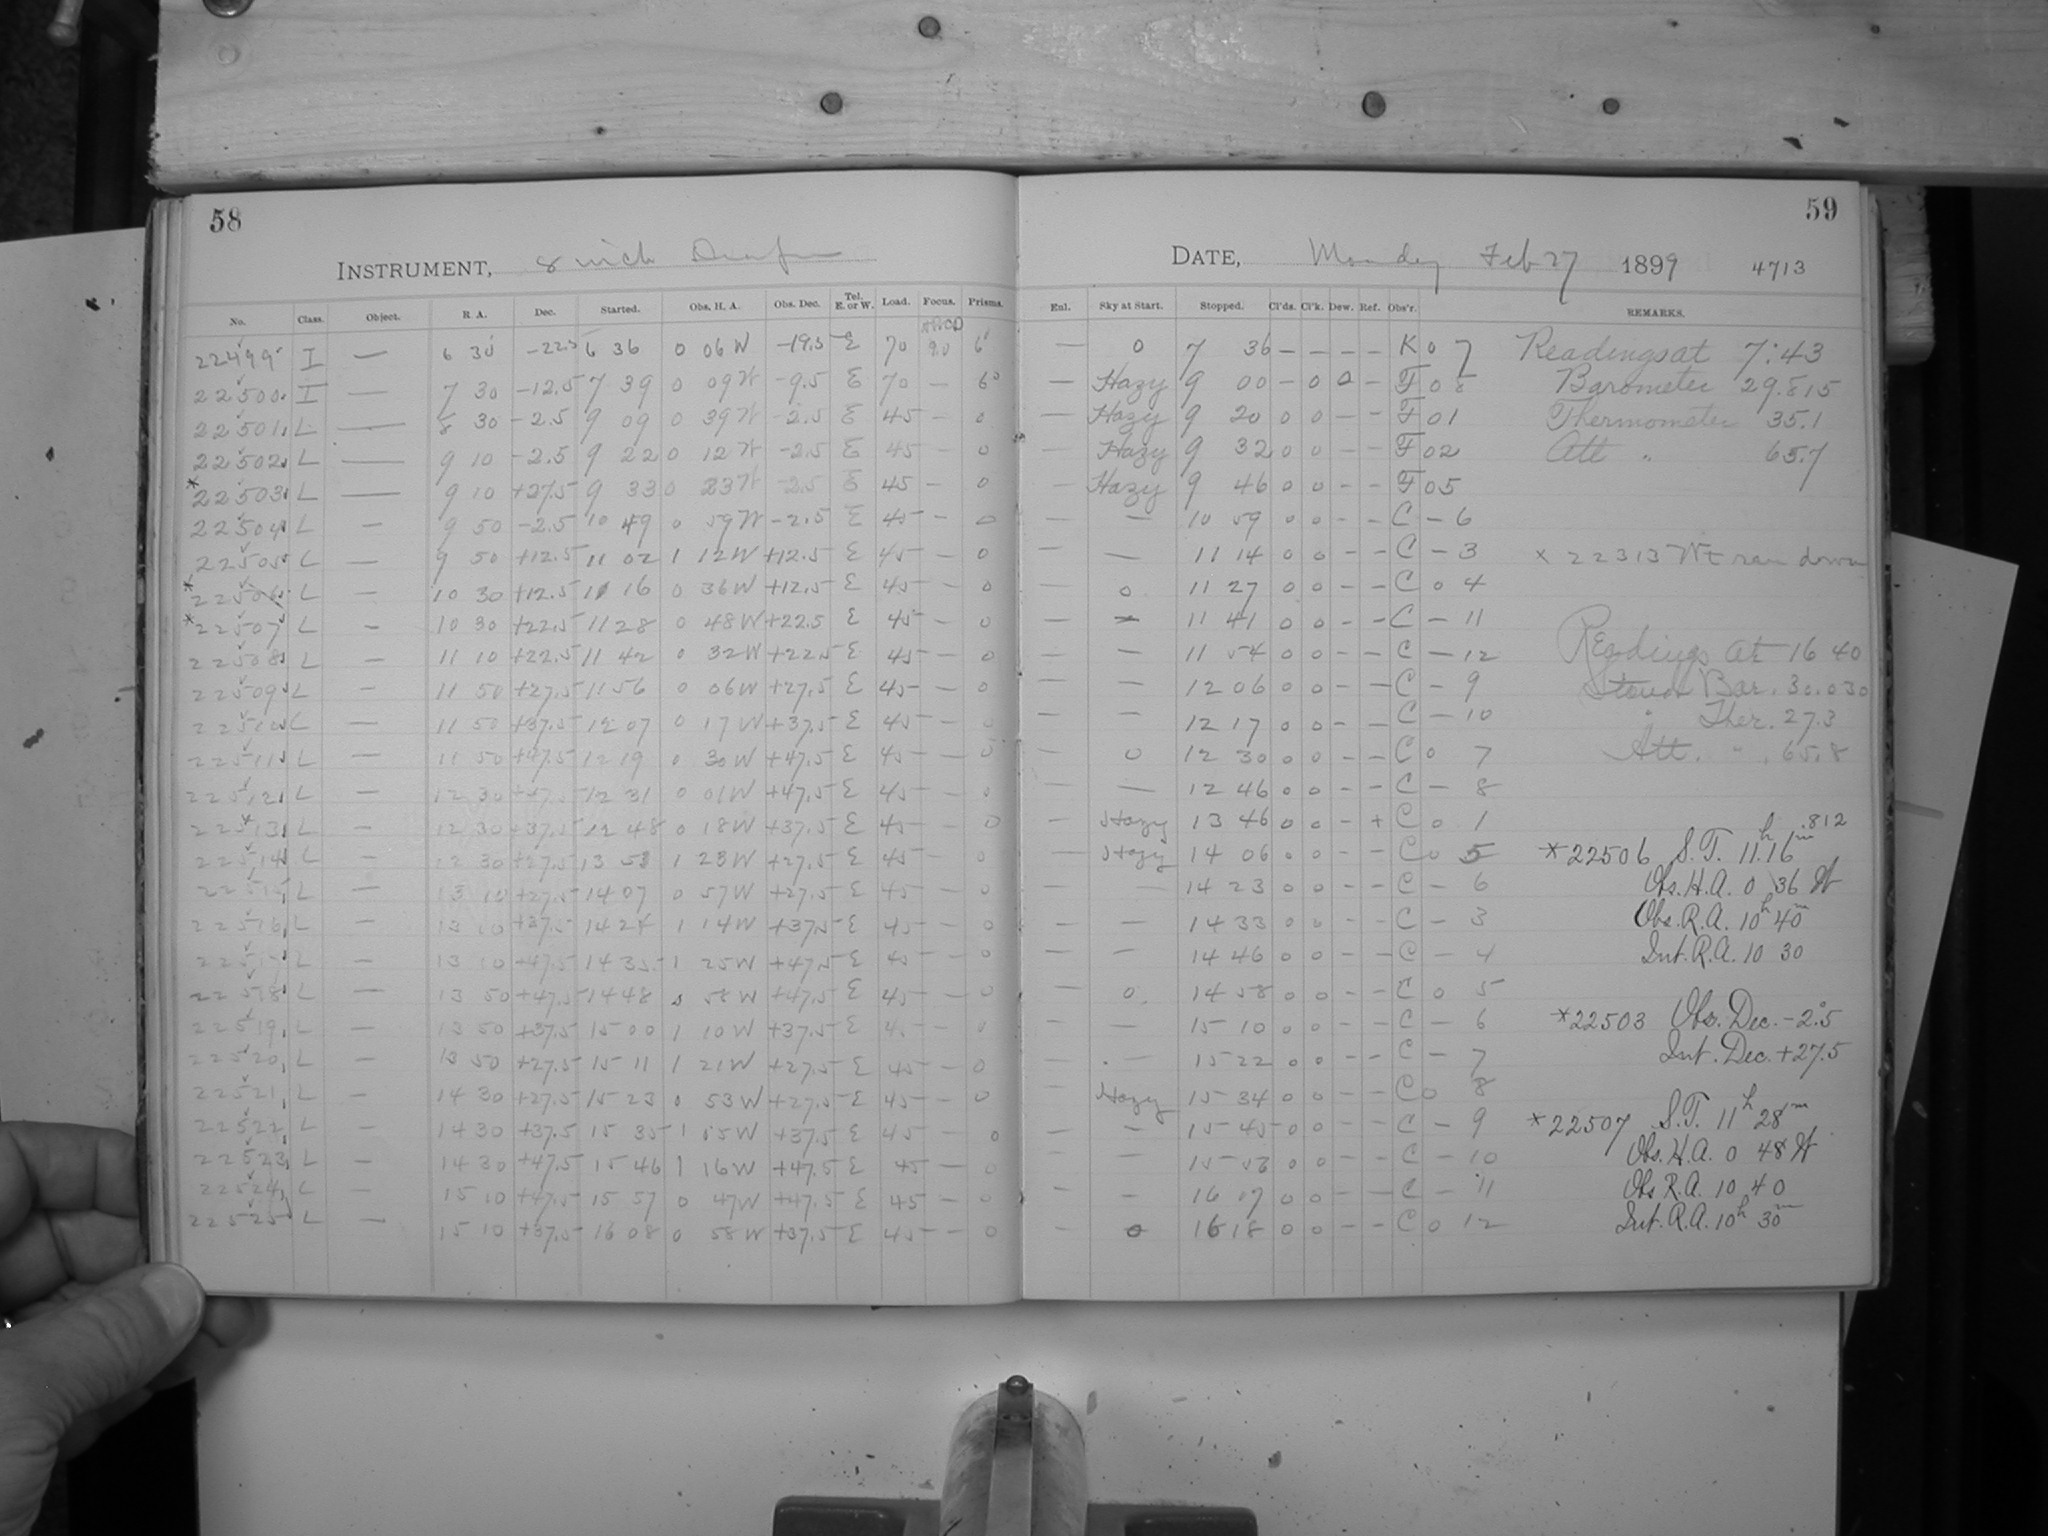 58
INSTRUMENT, 8 inch Draper
No. Class. Object. R A. Dec. Started. Obs. H. A. Obs. Dec. Tel. E. or W. Load. Focus. Prisms.
22499 I — 6 30 -22.5 6 36 0 06 W -19.5 E 70 9.0 6°
22500 I — 7 30 -12.5 7 39 0 09 W -9.5 E 70 — 6°
22501 L — 8 30 -2.5 9 09 0 39 W -2.5 E 45 — 0
22502 L — 9 10 -2.5 9 22 0 12 W -2.5 E 45 — 0
*22503 L — 9 10 +27.5 9 33 0 23 W -2.5 E 45 — 0
22504 L — 9 50 -2.5 10 49 0 59 W -2.5 E 45 — 0
22505 L — 9 50 +12.5 11 02 1 12 W +12.5 E 45 — 0
*22506 L — 10 30 +12.5 11 16 0 36 W +12.5 E 45 — 0
*22507 L — 10 30 +22.5 11 28 0 48 W +22.5 E 45 — 0
22508 L — 11 10 +22.5 11 42 0 32 W +22.5 E 45 — 0
22509 L — 11 50 +27.5 11 56 0 06 W +27.5 E 45 — 0
22510 L — 11 50 +37.5 12 07 0 17 W +37.5 E 45 — 0
22511 L — 11 50 +47.5 12 19 0 30 W +47.5 E 45 — 0
22512 L — 12 30 +47.5 12 31 0 01 W +47.5 E 45 — 0
22513 L — 12 30 +37.5 12 48 0 18 W +37.5 E 45 — 0
22514 L — 12 30 +27.5 13 53 1 23 W +27.5 E 45 — 0
22515 L — 13 10 +27.5 14 07 0 57 W +27.5 E 45 — 0
22516 L — 13 10 +37.5 14 24 1 14 W +37.5 E 45 — 0
22517 L — 13 10 +47.5 14 35 1 25 W +47.5 E 45 — 0
22518 L — 13 50 +47.5 14 48 0 58 W +47.5 E 45 — 0
22519 L — 13 50 +37.5 15 00 1 10 W +37.5 E 45 — 0
22520 L — 13 50 +27.5 15 11 1 21 W +27.5 E 45 — 0
22521 L — 14 30 +27.5 15 23 0 53 W +27.5 E 45 — 0
22522 L — 14 30 +37.5 15 35 1 05 W +37.5 E 45 — 0
22523 L — 14 30 +47.5 15 46 1 16 W +47.5 E 45 — 0
22524 L — 15 10 +47.5 15 57 0 47 W +47.5 E 45 — 0
22525 L — 15 10 +37.5 16 08 0 58 W +37.5 E 45 — 0
59
DATE, Monday Feb 27 1899 4713
Enl. Sky at Start. Stopped. Cl'ds. Cl'k. Dew. Ref. Obs'r. REMARKS.
0 7 36 — — — — K 0 7 Readings at 7:43
— Hazy 9 00 — 0 0 — F 0 8 Barometer 29.815
— Hazy 9 20 0 0 — — F 0 1 Thermometer 35.1
— Hazy 9 32 0 0 — — F 0 2 Att " 65.7
— Hazy 9 46 0 0 — — F 0 5
— — 10 59 0 0 — — C — 6
— — 11 14 0 0 — — C — 3 × 22313 Wt ran down
— 0 11 27 0 0 — — C 0 4
— — 11 41 0 0 — — C — 11
— — 11 54 0 0 — — C — 12 Readings at 16 40
— — 12 06 0 0 — — C — 9 Bar. 30.030
— — 12 17 0 0 — — C — 10 " Ther. 27.3
— 0 12 30 0 0 — — C 0 7 Att. " 65.8
— — 12 46 0 0 — — C — 8
— Hazy 13 46 0 0 — + C 0 1 .812
— Hazy 14 06 0 0 — — C 0 5 *22506 S.T. 11h 16m
— — 14 23 0 0 — — C — 6 Obs. H.A. 0 36 W
— — 14 33 0 0 — — C — 3 Obs. R.A. 10h 40m
— — 14 46 0 0 — — C — 4 Int. R.A. 10 30
— 0 14 58 0 0 — — C 0 5
— — 15 10 0 0 — — C — 6 *22503 Obs. Dec. -2°.5
— — 15 22 0 0 — — C — 7 Int. Dec. +27.5
— Hazy 15 34 0 0 — — C 0 8
— — 15 45 0 0 — — C — 9 *22507 S.T. 11h 28m
— — 15 53 0 0 — — C — 10 Obs. H.A. 0 48 W
— — 16 07 0 0 — — C — 11 Obs R.A. 10 40
— 0 16 18 0 0 — — C 0 12 Int. R.A. 10h 30m